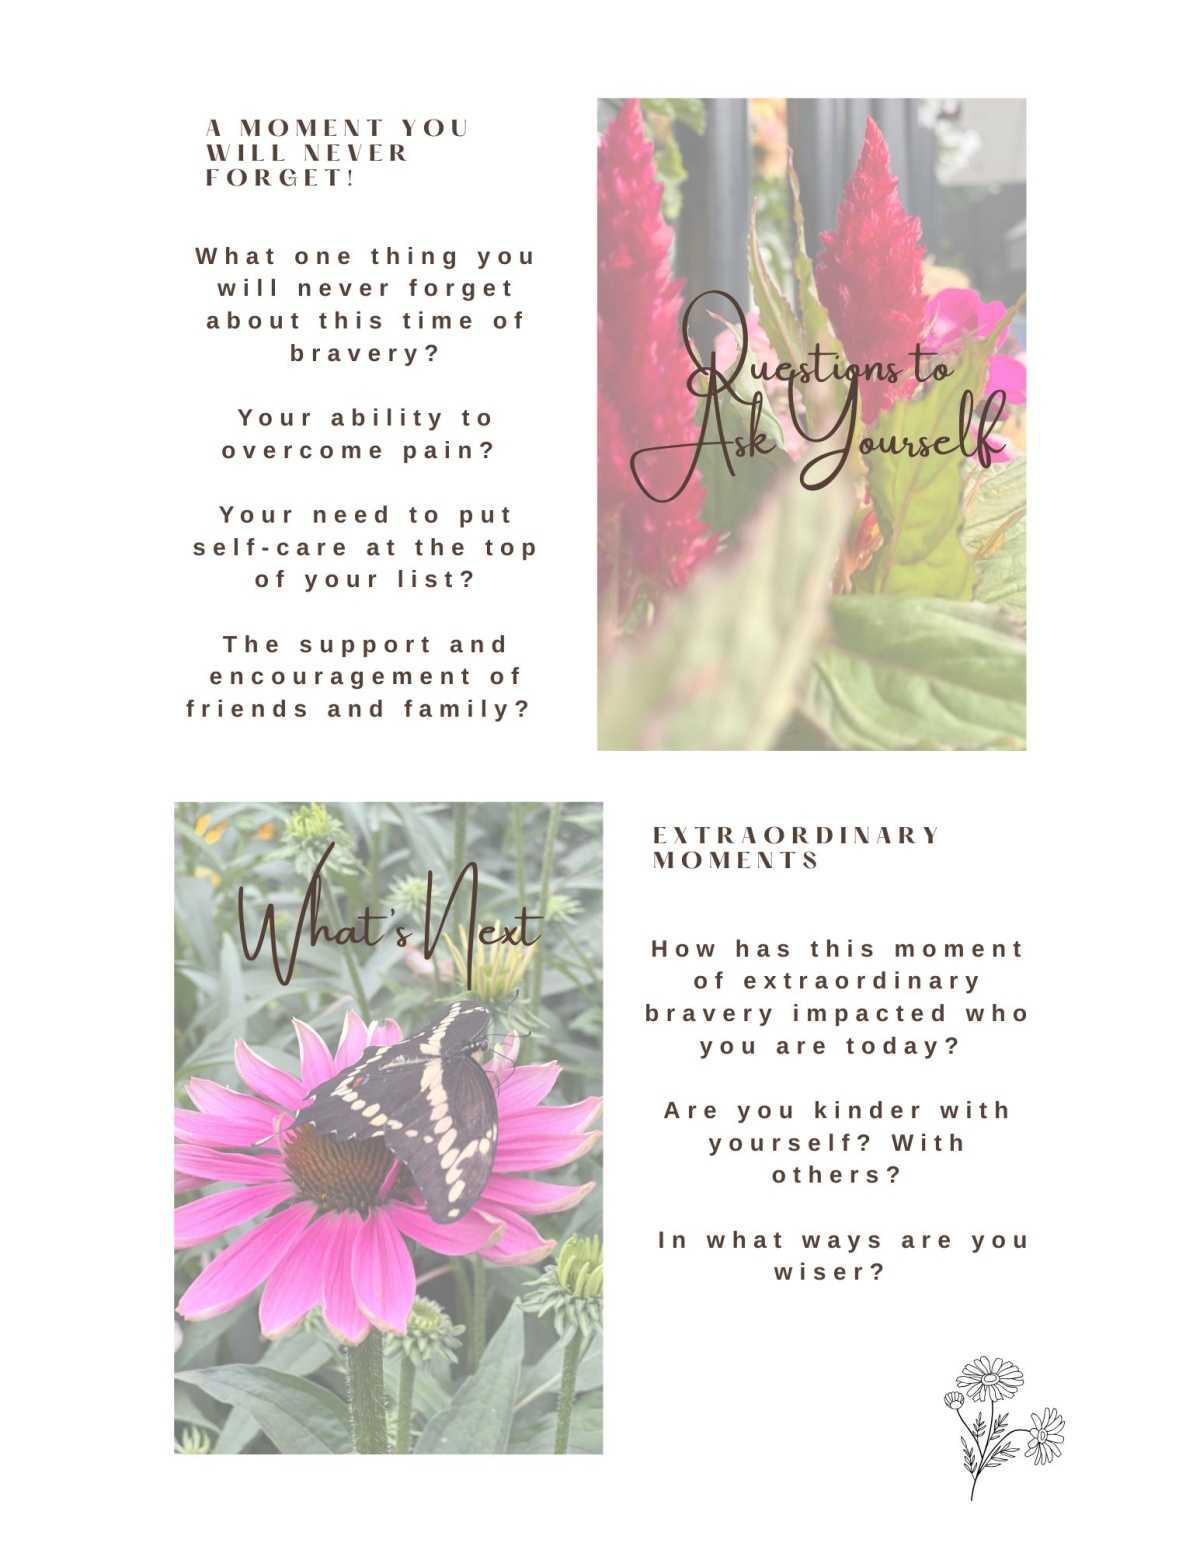 A MOMENT YOU
WILL NEVER
FORGET!
What one thing you
will never forget
about this time of
bravery?
Your ability to
overcome pain?
Your need to put
self-care at the top
of your list?
The support and
encouragement of
friends and family?
Questions to
Ask Yourself
What's Next
EXTRAORDINARY
MOMENTS
How has this moment
of extraordinary
bravery impacted who
you are today?
Are you kinder with
yourself? With
others?
In what ways are you
wiser?